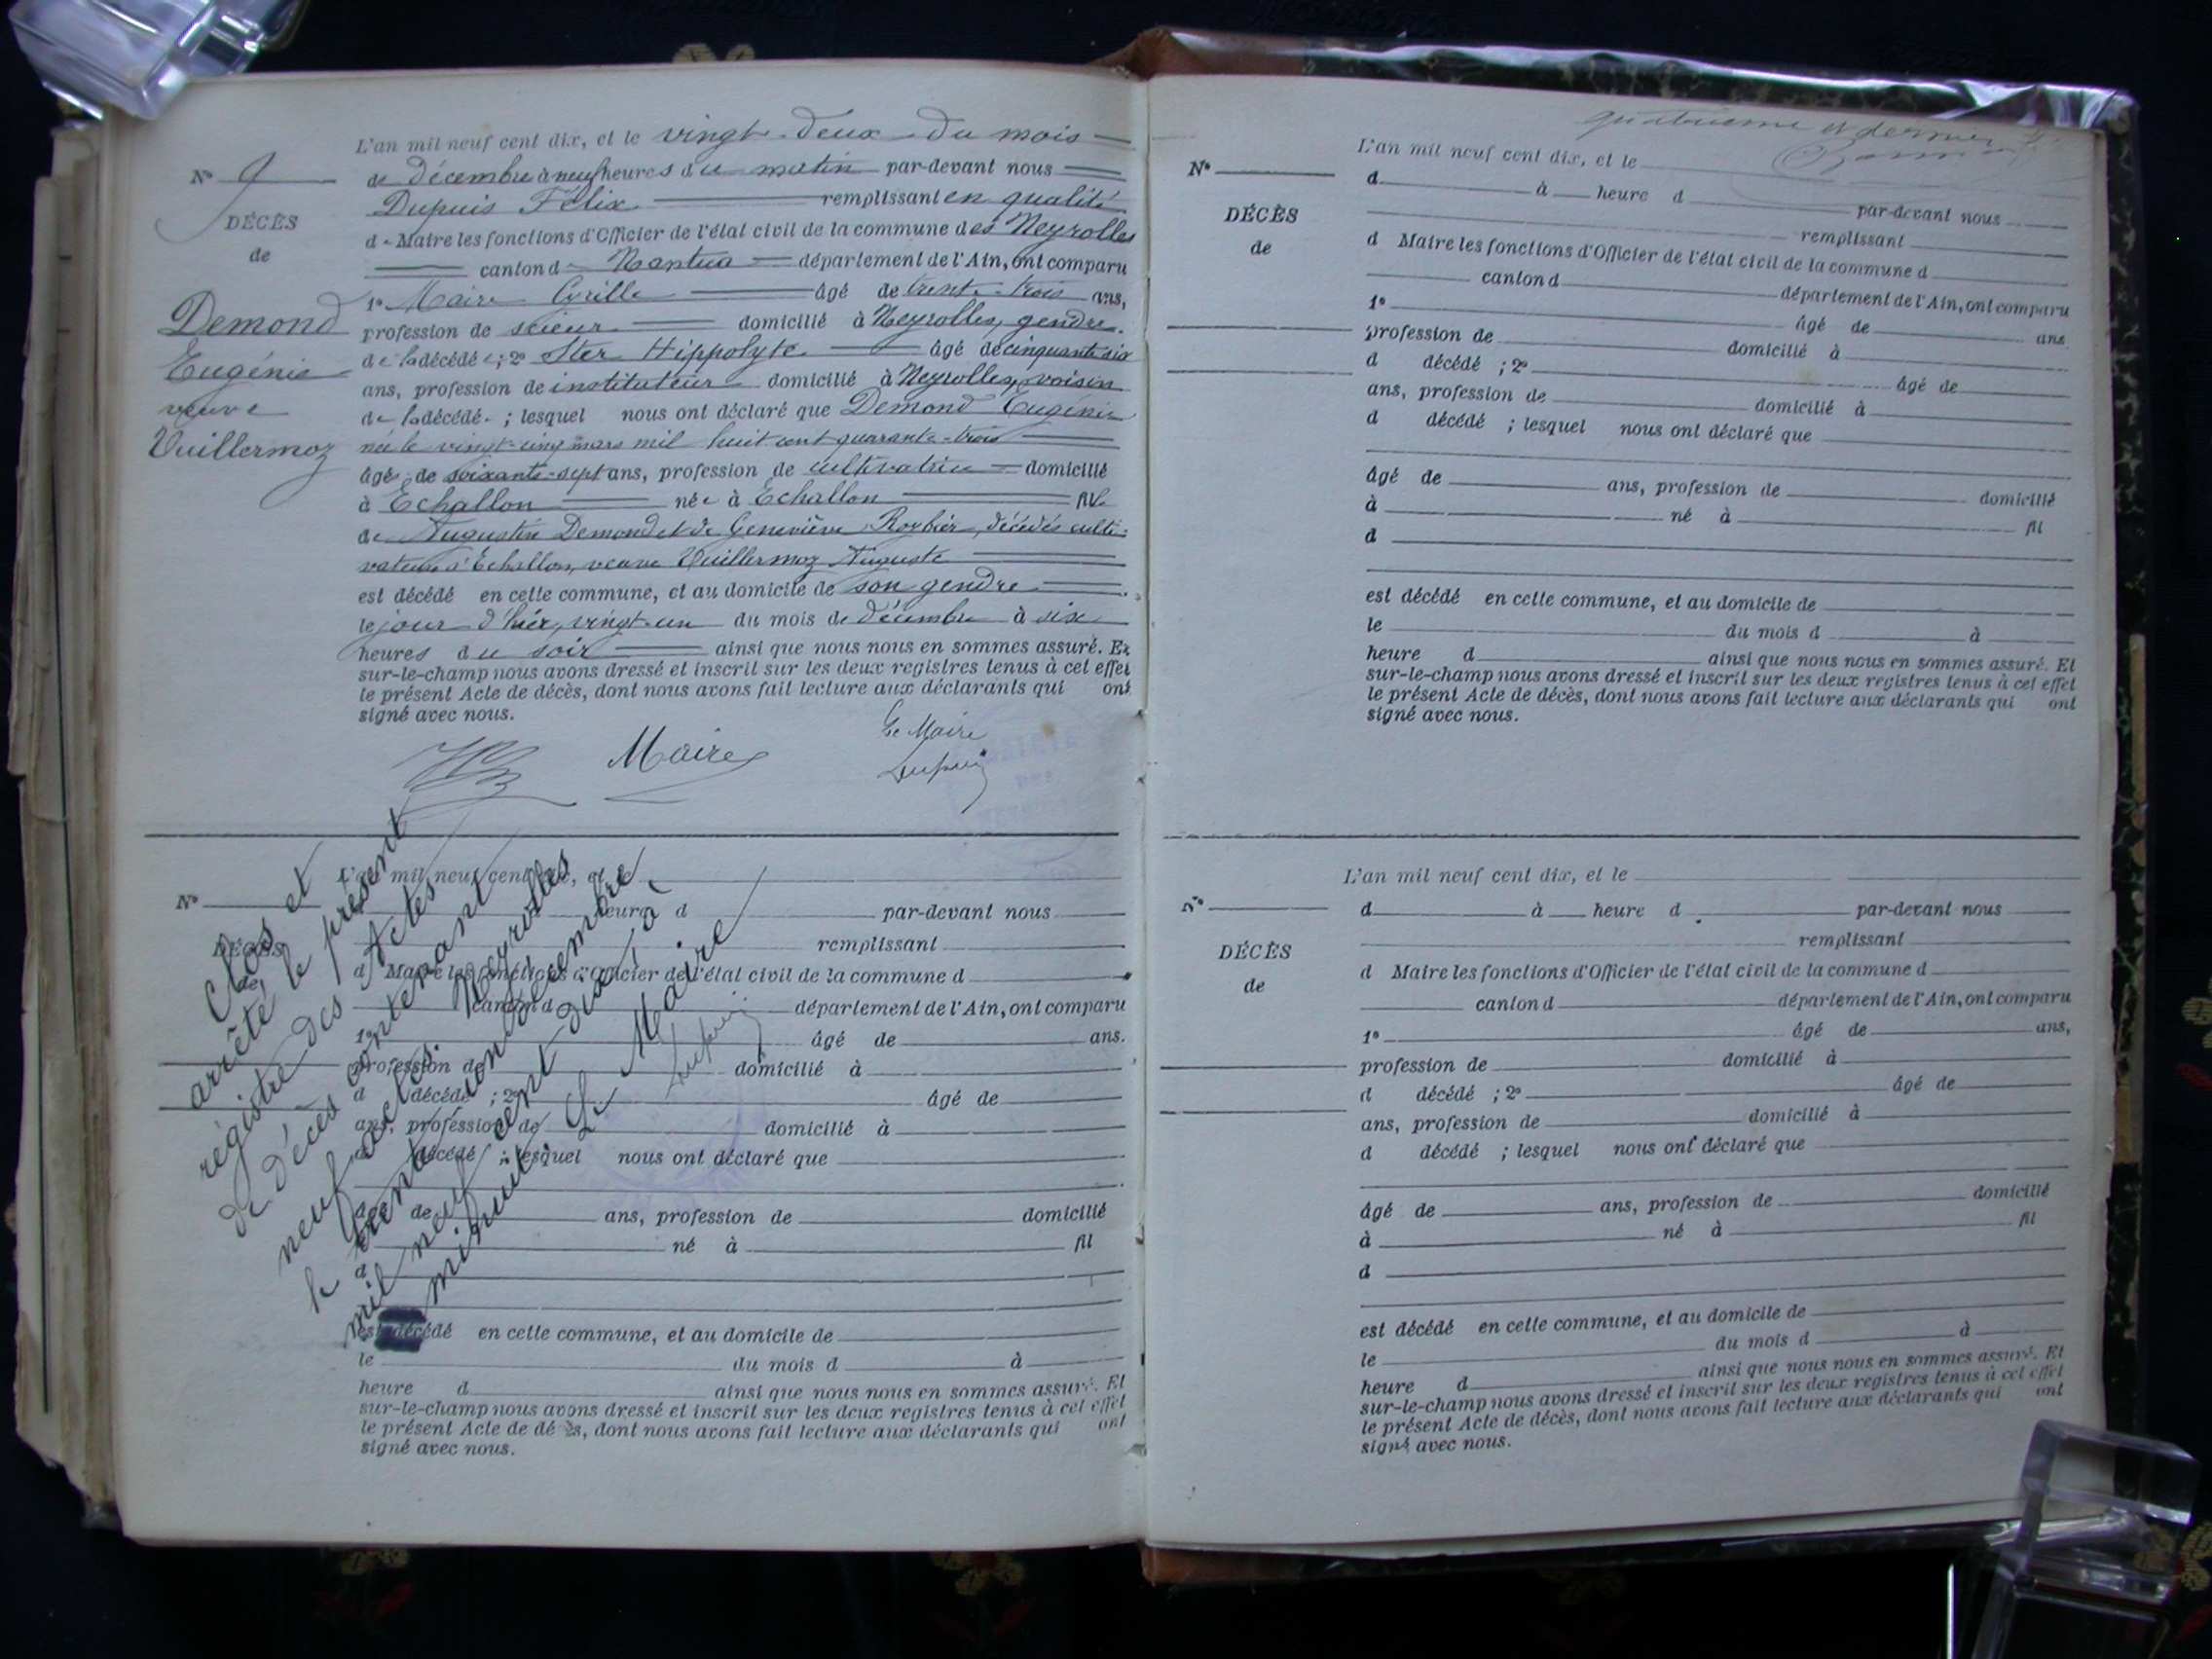 L'an mil neuf cent dix, et le vingt-deux du mois
N° 9
de Décembre à neuf heures du matin par-devant nous
Dupuis Félix remplissant en qualité
DÉCÈS
de Maire les fonctions d'Officier de l'état civil de la commune des Neyrolles
de
canton de Nantua département de l'Ain, ont comparu
1° Maire Cyrille âgé de trente-trois ans,
Demond
profession de scieur domicilié à Neyrolles, gendre
de la décédée; 2° Ster Hippolyte âgé de cinquante-six
Eugénie
ans, profession de instituteur domicilié à Neyrolles, voisin
veuve
de la décédée ; lesquel nous ont déclaré que Demond Eugénie
Vuillermoz
née le vingt-cinq mars mil huit cent quarante-trois
âgée de soixante-sept ans, profession de cultivatrice domicilié
à Echallon née à Echallon fille
de Augustin Demond et de Geneviève Rorbier, décédés culti-
vateurs à Echallon, veuve Vuillermoz Auguste
est décédé en cette commune, et au domicile de son gendre
le jour d'hier, vingt-un du mois de Décembre à six
heures du soir ainsi que nous nous en sommes assuré. Et
sur-le-champ nous avons dressé et inscrit sur les deux registres tenus à cet effet
le présent Acte de décès, dont nous avons fait lecture aux déclarants qui ont
signé avec nous.
Maire
Le Maire
Dupuis
L'an mil neuf cent dix, et le
N°
heure d par-devant nous
remplissant
DÉCÈS
d Maire les fonctions d'Officier de l'état civil de la commune d
de
canton d département de l'Ain, ont comparu
1° âgé de ans.
profession de domicilié à
d décédé ; 2° âgé de
ans, profession de domicilié à
d décédé ; lesquel nous ont déclaré que
âgé de ans, profession de domicilié
né à fil
d
est décédé en cette commune, et au domicile de
le du mois d à
heure d ainsi que nous nous en sommes assuré. Et
sur-le-champ nous avons dressé et inscrit sur les deux registres tenus à cet effet
le présent Acte de décès, dont nous avons fait lecture aux déclarants qui ont
signé avec nous.
Clos et
arrêté le présent
régistre des Actes
de décès contenant
neuf actes. Neyrolles
le trente un décembre
mil neuf cent dix à
minuit. Le Maire
Dupuis
quatrième et dernier
L'an mil neuf cent dix, et le
N°
d à heure d par-devant nous
remplissant
DÉCÈS
d Maire les fonctions d'Officier de l'état civil de la commune d
de
canton d département de l'Ain, ont comparu
1° âgé de ans
profession de domicilié à
d décédé ; 2° âgé de
ans, profession de domicilié à
d décédé ; lesquel nous ont déclaré que
âgé de ans, profession de domicilié
à né à fil
d
est décédé en cette commune, et au domicile de
le du mois d à
heure d ainsi que nous nous en sommes assuré. Et
sur-le-champ nous avons dressé et inscrit sur les deux registres tenus à cet effet
le présent Acte de décès, dont nous avons fait lecture aux déclarants qui ont
signé avec nous.
L'an mil neuf cent dix, et le
N°
d à heure d par-devant nous
remplissant
DÉCÈS
d Maire les fonctions d'Officier de l'état civil de la commune d
de
canton d département de l'Ain, ont comparu
1° âgé de ans,
profession de domicilié à
d décédé ; 2° âgé de
ans, profession de domicilié à
d décédé ; lesquel nous ont déclaré que
âgé de ans, profession de domicilié
à né à fil
d
est décédé en cette commune, et au domicile de
le du mois d à
heure d ainsi que nous nous en sommes assuré. Et
sur-le-champ nous avons dressé et inscrit sur les deux registres tenus à cet effet
le présent Acte de décès, dont nous avons fait lecture aux déclarants qui ont
signé avec nous.